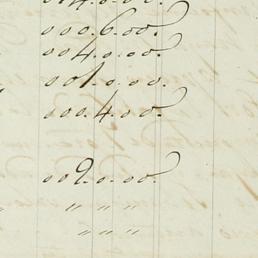 000.6.00.
004.0.00.
001.0.00.
000.4.00.
002.0.00.
" " "
" " "